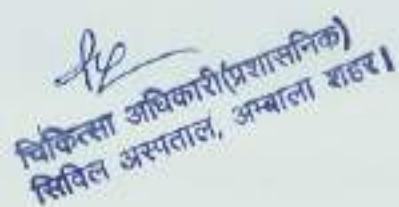 चिकित्सा अधिकारी(प्रशासनिक)
सिविल अस्पताल, अम्बाला शहर।